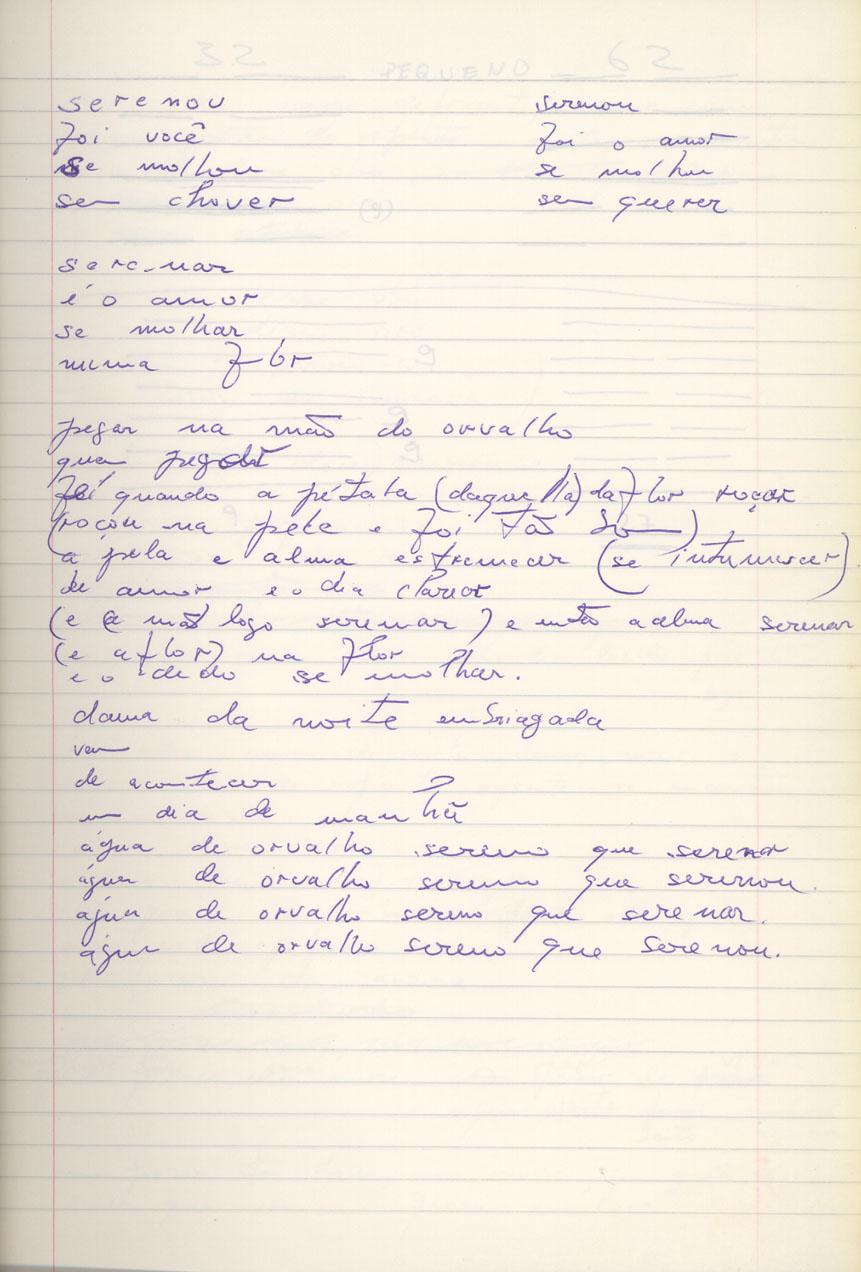 serenou
foi você
se molhou
sem chover
serenou
foi o amor
se molhou
sem querer
serenar
é o amor
se molhar
numa flôr
pegar na mão do orvalho
quem
foi quando a pétala (daquella) da flor roçar
(roçou na pele e foi tão bom)
a pele e alma estremecer (se intumescer)
de amor e o dia clarear
(e a mão logo serenar) e então a alma serenar
(e a flor) na flor
e o dedo se molhar.
dama da noite embriagada
vem
de acontecer
um dia de manhã
água de orvalho sereno que serenar
água de orvalho sereno que serenou.
água de orvalho sereno que serenar.
água de orvalho sereno que serenou.